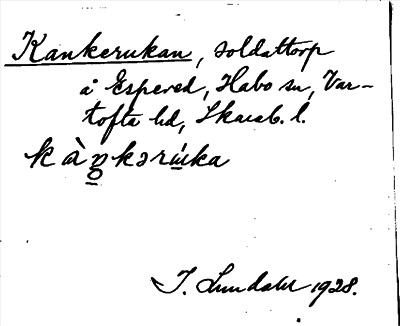 Kankerukan, soldattorp
å Espered, Habo sn, Var-
tofta hd, Skarab. l.
kàŋkəru̇ka
I. Lundahl 1928.